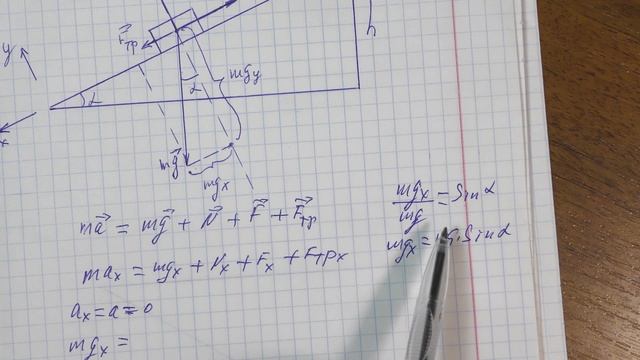 y
F⃗тр
h
α
mgy
α
x
mg⃗
mgx
ma⃗ = mg⃗ + N⃗ + F⃗ + F⃗тр
max = mgx + Nx + Fx + Fтрx
ax = a = 0
mgx =
mgx/mg = Sin α
mgx = mg·Sin α